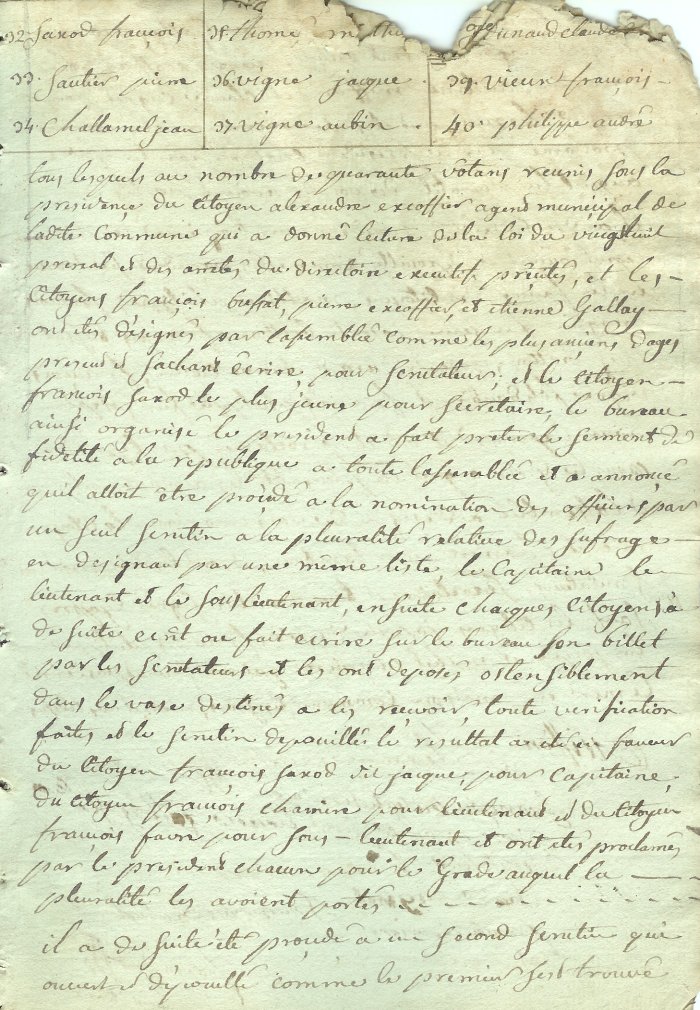 32. Saxod françois 35. thomé 38. Dunand claude
33. Sautier pierre 36. vigne jacque 39. vieux françois
34. Challamel jean 37. vigne aubin 40. philippe andré
tous lesquels au nombre de quarante votans reunis sous la
presidence du Citoyen alexandre excoffier agend municipal de
ladite Commune qui a donné lecture de la loi du vingthuit
prerial et des arretés du directoire executif précités, et les
Citoyens françois buffat, pierre excoffier, et etienne Gallay
ont étés désignés par lassemblée comme les plus anciens dages
presend et sachans écrire pour Scrutateur; et le Citoyen
françois Saxod le plus jeune pour Secretaire, le bureau
ainsi organisé le presidend a fait preter le Serment de
fidelité a la republique a toute lassemblée et a annoncé
quil alloit être procédé a la nomination des officiers par
un seul Scrutin a la pluralité relative des sufrage
en designand par une même liste, le Capitaine le
lieutenant et le souslieutenant, ensuite chacques Citoyens a
de suite ecrit ou fait ecrire sur le bureau son billet
par les Scrutateurs et les ont deposés ostensiblement
dans le vase destinés a les recevoir, toute verification
faites et le Scrutin depouillés le resultat a été en faveur
du Citoyen françois Saxod dit jacque, pour Capitaine,
du citoyen françois pour lieutenand et du Citoyen
françois favre pour sous-lieutenant et ont etés proclamés
par le presidend chacun pour le Grade auquel la
pluralité les avoient portés
il a de suite été procedé a un second Scrutin qui
ouvert et dépouillé comme le premier sest trouvé